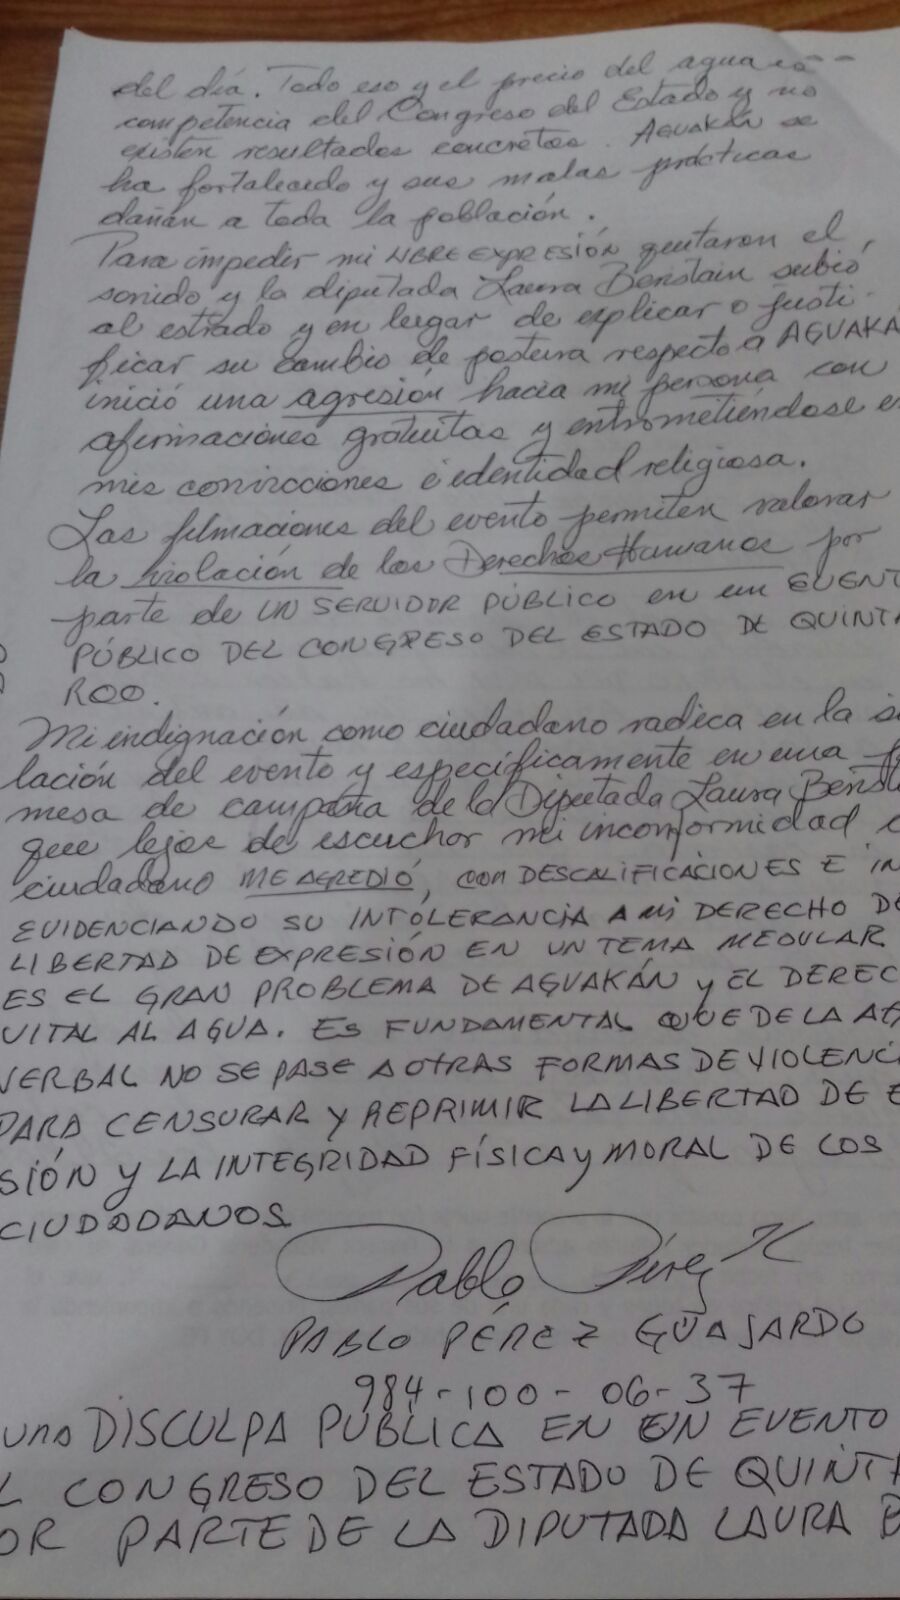 del día. Todo eso y el precio del agua es
competencia del Congreso del Estado y no
existen resultados concretos. AGUAKÁN se
ha fortalecido y sus malas prácticas
dañan a toda la población.
Para impedir mi LIBRE EXPRESIÓN quitaron el
sonido y la diputada Laura Beristain subió
al estrado y en lugar de explicar o justi-
ficar su cambio de postura respecto a AGUAKÁ
inició una agresión hacia mi persona con
afirmaciones gratuitas y entrometiéndose e
mis convicciones é identidad religiosa.
Las filmaciones del evento permiten valorar
la violación de los Derechos Humanos por
parte de UN SERVIDOR PÚBLICO en un EVENT
PÚBLICO DEL CONGRESO DEL ESTADO DE QUINTA
ROO.
Mi indignación como ciudadano radica en la si
lación del evento y específicamente en una p
mesa de campaña de la Diputada Laura Berist
que lejos de escuchar mi inconformidad c
ciudadano ME AGREDIÓ, con DESCALIFICACIONES E IN
EVIDENCIANDO SU INTOLERANCIA A MI DERECHO DE
LIBERTAD DE EXPRESIÓN EN UN TEMA MEDULAR
ES EL GRAN PROBLEMA DE AGUAKÁN y EL DEREC
VITAL AL AGUA. ES FUNDAMENTAL QUE DE LA AG
VERBAL NO SE PASE A OTRAS FORMAS DE VIOLENCI
PARA CENSURAR Y REPRIMIR LA LIBERTAD DE E
SIÓN Y LA INTEGRIDAD FÍSICA Y MORAL DE LOS
CIUDADANOS
Pablo Pérez
PABLO PÉREZ GUAJARDO
984-100-06-37
una DISCULPA PÚBLICA EN UN EVENTO
L CONGRESO DEL ESTADO DE QUINTA
OR PARTE DE LA DIPUTADA LAURA B